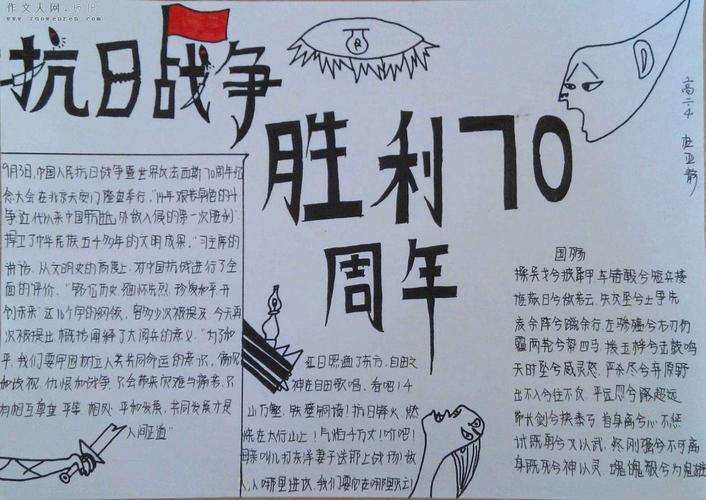 作文人网
www.zuowenren.com
抗日战争
胜利70
周年
高二4
9月3日,中国人民抗日战争暨世界反法西斯70周年纪
念大会在北京天安门隆重举行。"14年艰苦卓绝的斗
争近代以来中国 外敌入侵的第一次胜利"
捍卫了中华民族五千多年的文明成果,"习主席的
讲话,从文明史的高度上,对中国抗战进行了全
面的评价。"铭记历史,缅怀先烈,珍爱和平,开
创未来"这16个字的纲领,曾多次被提及,今天再
次被提出,概括阐释了大阅兵的意义。"为了和
平,我们要牢固树立人类共同命运的意识,偏见
和歧视,仇恨和战争,只会带来灾难与痛苦,只
有相互尊重,平等相处,和平发展,共同发展才是
人间正道"
红日照遍了东方,自由之
神在自由歌唱,看吧!千
山万壑,铁壁铜墙!抗日烽火,燃
烧在太行山上!气焰千万丈!听吧!
母亲叫儿打东洋,妻子送郎上战场!敌
人从哪里进攻,我们要他在哪里灭亡!
国殇
操吴戈兮披犀甲,车错毂兮短兵接
旌蔽日兮敌若云,矢交坠兮士争先
凌余阵兮躐余行,左骖殪兮右刃伤
霾两轮兮絷四马,援玉桴兮击鼓鸣
天时坠兮威灵怒,严杀尽兮弃原野
出不入兮往不反,平远忽兮路超远
带长剑兮挟秦弓,首身离兮心不惩
诚既勇兮又以武,终刚强兮不可凌
身既死兮神以灵,魂魄毅兮为鬼雄